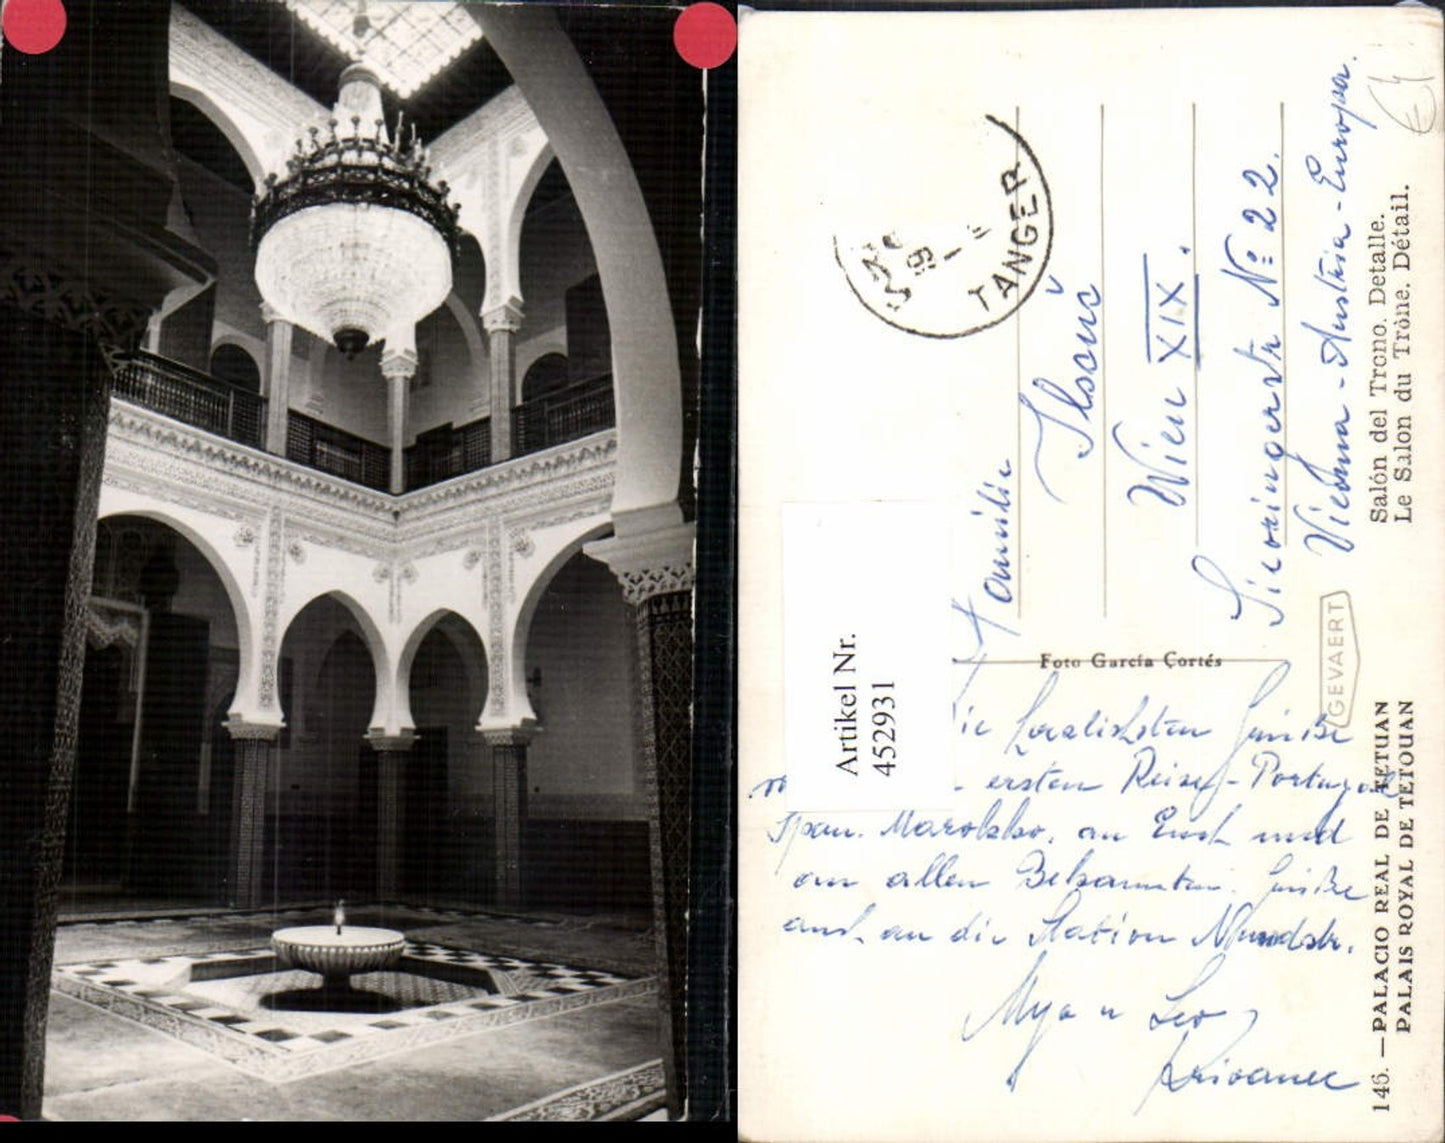 TANGER
19
Familie
Wien XIX.
Sieveringerstr. № 22.
Vienna - Austria - Europa.
Salón del Trono. Detalle.
Le Salon du Trône. Détail.
Foto García Cortés
GEVAERT
Artikel Nr.
452931
ie herzlichsten Grüße
ersten Reise - Portugal
Span. Marokko. an Euch und
an allen Bekannten. Grüße
auch an die Station
u Leo
Krivanec
146. — PALACIO REAL DE TETUAN
PALAIS ROYAL DE TETOUAN